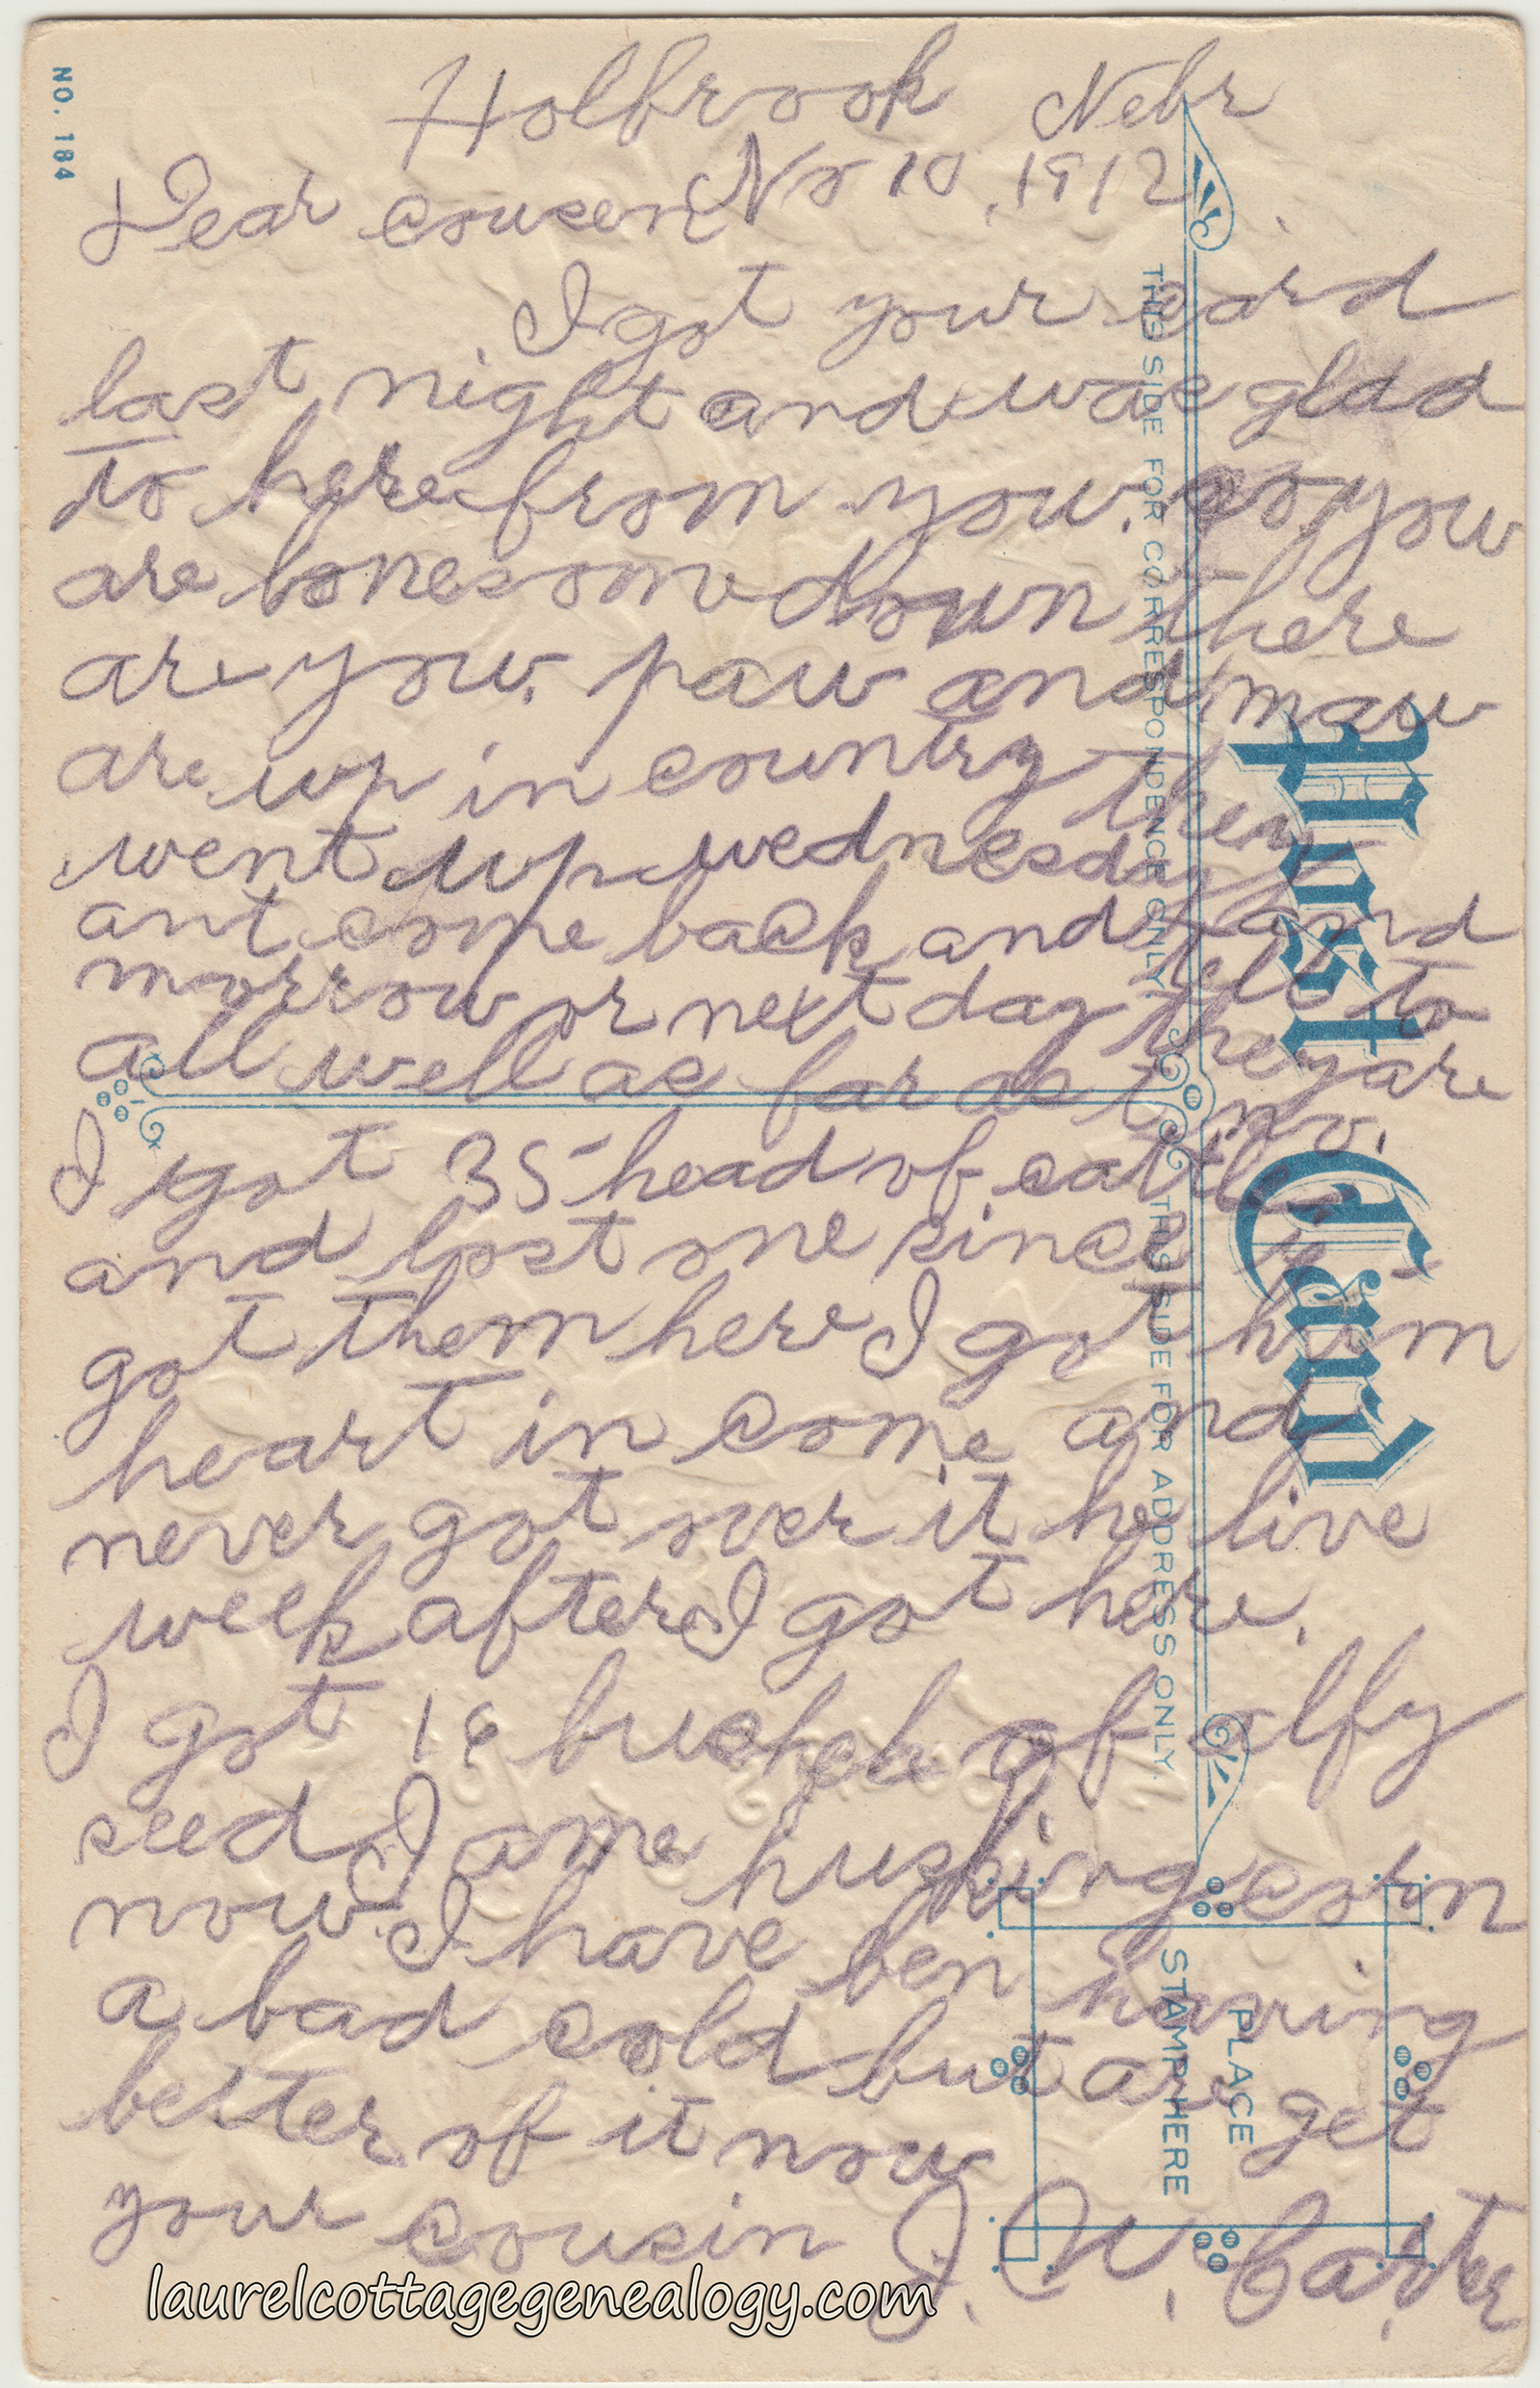 NO. 184
Holbrook Nebr
Dear cousen Nov 10, 1912
I got your card
last night and was glad
to here from you. so you
are lonesome down there
are you. paw and maw
are up in country they
went up wednesday
ant come back and
morrow or next day tell to
all well as far as I no. they are
I got 35 head of cattle
and lost one since I
got them here I got him
heart in come and
never got over it he live
week after I got here.
I got 18 bushels of alfy
seed I ame husking corn
now I have ben having
a bad cold but are get
better of it now
your cousin J. W. Carter
Post Card
THIS SIDE FOR CORRESPONDENCE ONLY.
THIS SIDE FOR ADDRESS ONLY.
PLACE
STAMP HERE
laurelcottagegenealogy.com